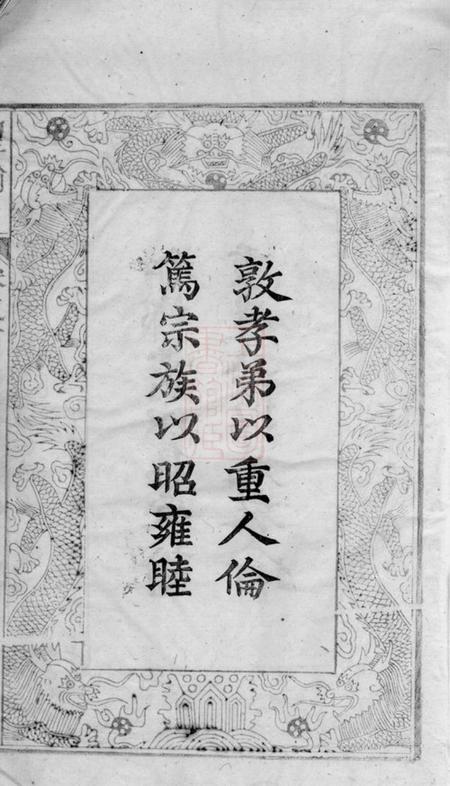 敦孝弟以重人倫
篤宗族以昭雍睦